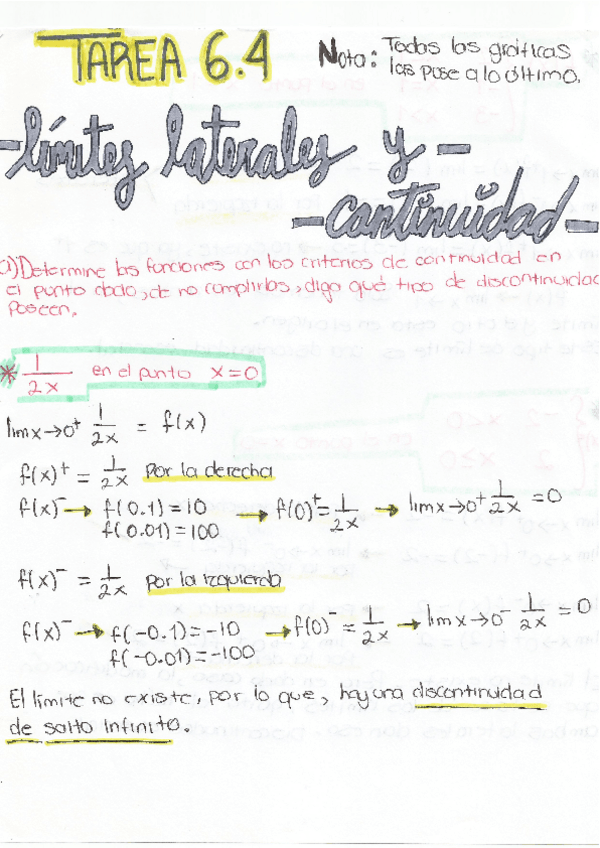 TAREA 6.4
Nota: Todas las gráficas
las puse a lo último.
-límites laterales y-
-continuidad-
a) Determine las funciones con los criterios de continuidad en
el punto dado, de no cumplirlos, diga qué tipo de discontinuidad
poseen.
* 1/2x en el punto x=0
lim x→0⁺ 1/2x = f(x)
f(x)⁺ = 1/2x Por la derecha
f(x)⁻ → f(0.1)=10 → f(0)⁺= 1/2x → lim x→0⁺ 1/2x =0
f(0.01)=100
f(x)⁻ = 1/2x Por la Izquierda
f(x)⁻ → f(-0.1)=-10 → f(0)⁻ = 1/2x → lim x→0⁻ 1/2x =0
f(-0.01)=-100
El límite no existe, por lo que, hay una discontinuidad
de salto infinito.